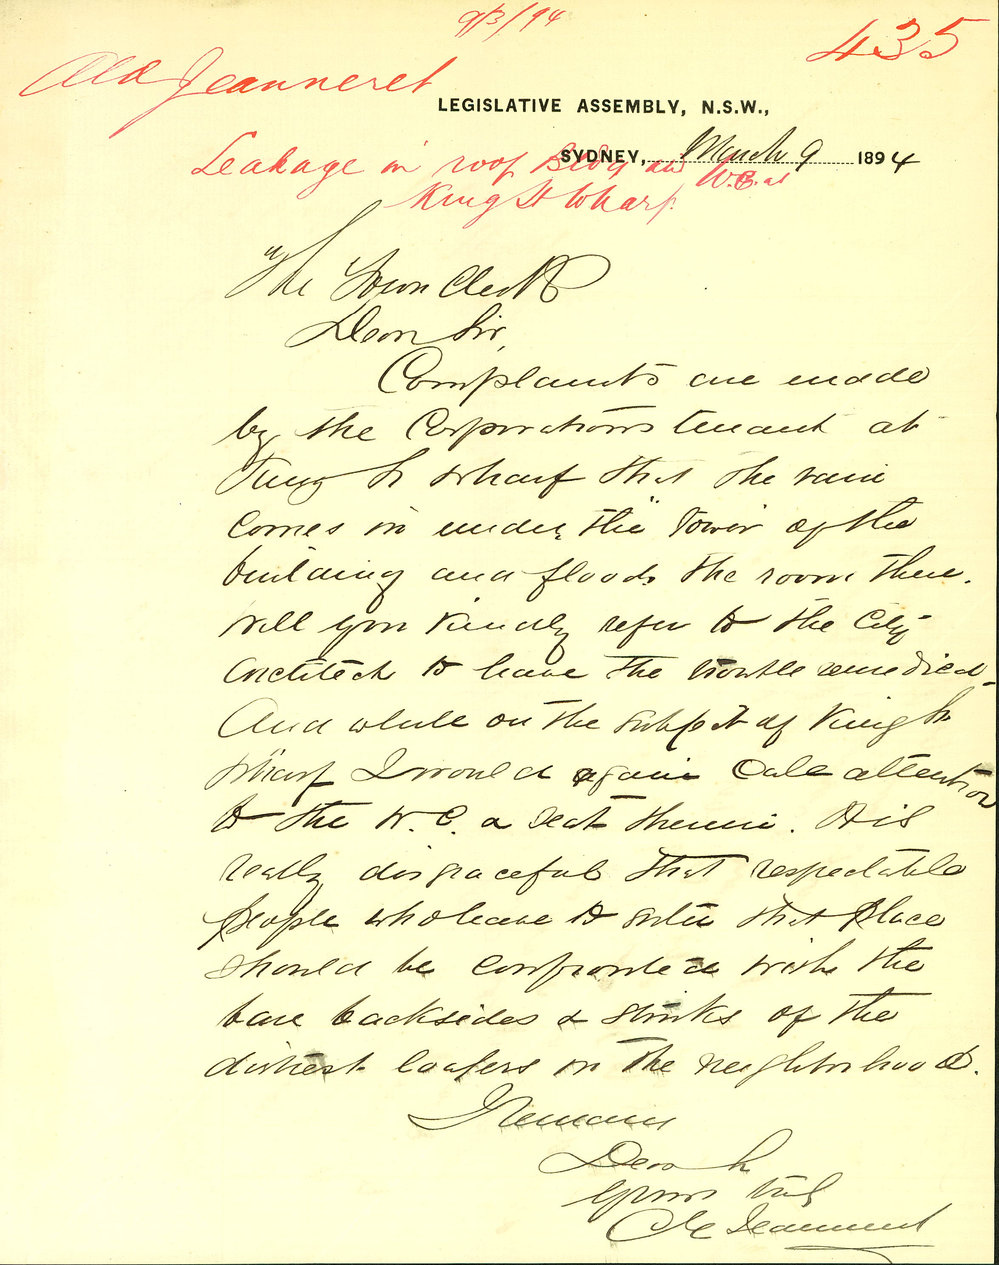 9/3/94
435
Ald Jeanneret
LEGISLATIVE ASSEMBLY, N.S.W.,
SYDNEY, March 9 1894
Leakage in roof Bldg and W.C. at
King St Wharf.
The Town Clerk
Dear Sir,
Complaints are made
by the Corporations tenant at
King St wharf that the rain
comes in under the tower of the
building and floods the room there.
Will you kindly refer to the City
Architect to have the trouble remedied -
And while on the subject of King St
wharf I would again call attention
to the W.C. & seat therein. It is
really disgraceful that respectable
people who have to enter that place
should be confronted with the
bare backsides & stinks of the
dirtiest loafers in the neighborhood.
I remain
Dear Sir
Yours truly
C E Jeanneret